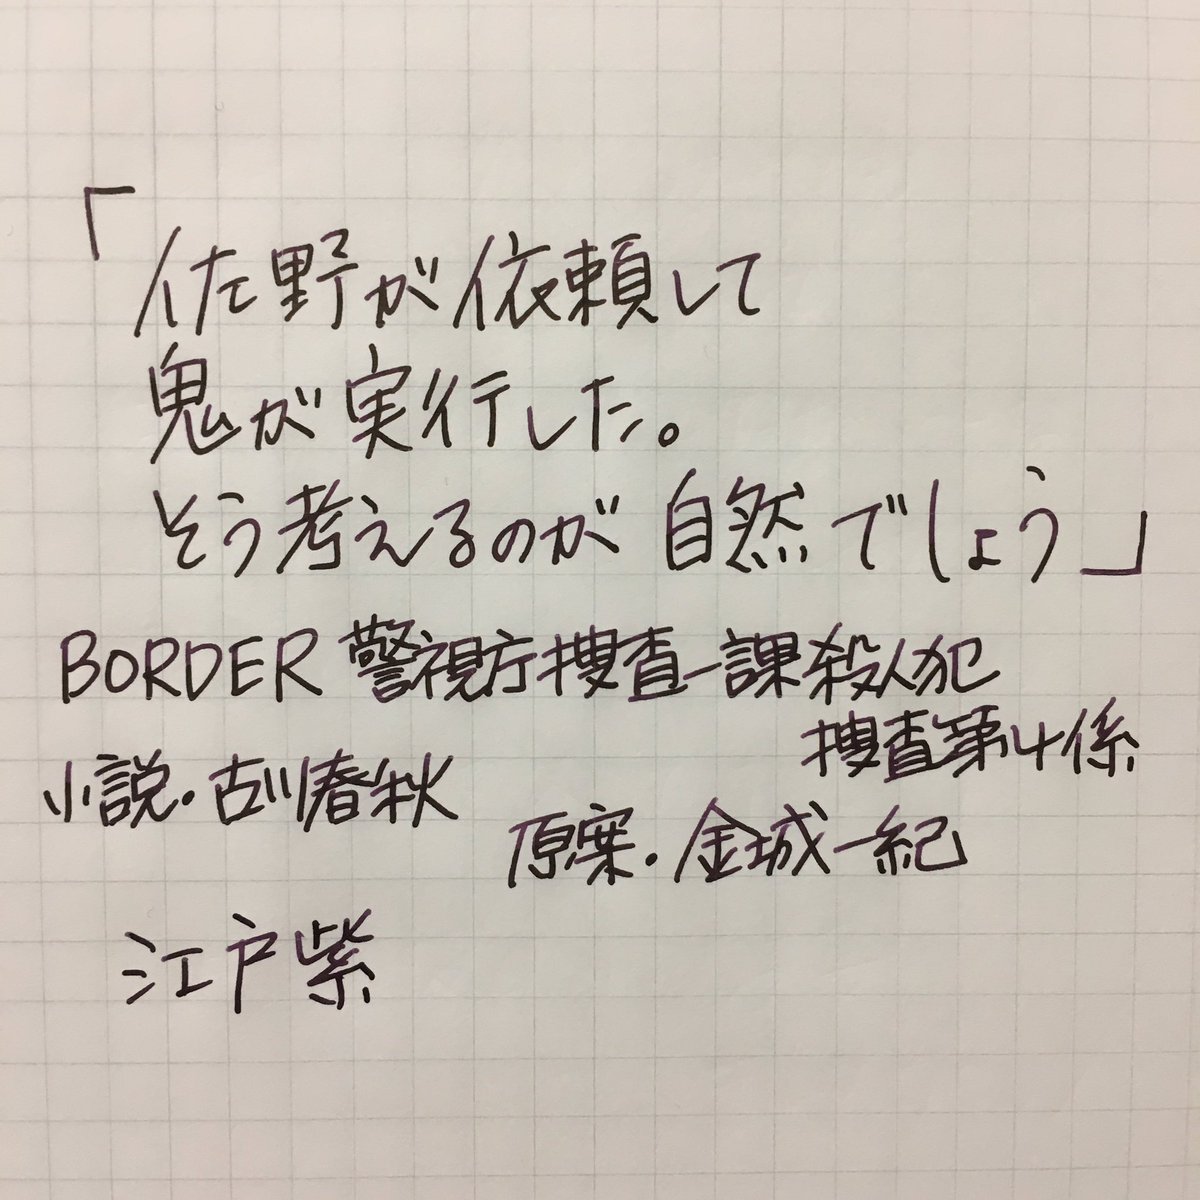 「佐野が依頼して
鬼が実行した。
そう考えるのが自然でしょう」
BORDER 警視庁捜査一課殺人犯
捜査第4係
小説・古川春秋
原案・金城一紀
江戸紫